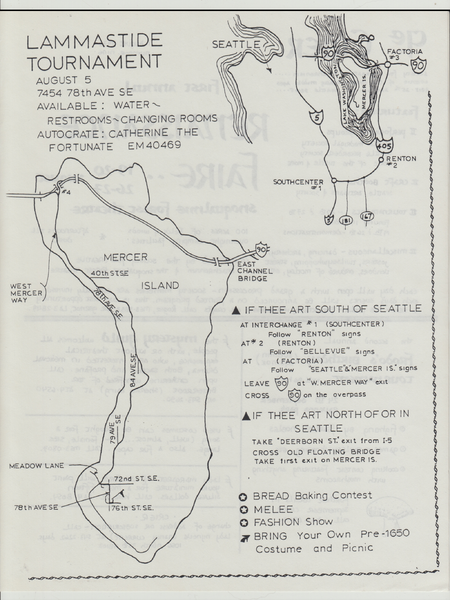 LAMMASTIDE
TOURNAMENT
AUGUST 5
7454 78th AVE SE
AVAILABLE: WATER~
RESTROOMS~CHANGING ROOMS
AUTOCRATE: CATHERINE THE
FORTUNATE EM40469
SEATTLE
90
FACTORIA
#3
90
LAKE WASHINGTON
MERCER IS.
5
405
RENTON
#2
SOUTHCENTER
#1
5
181
167
#4
MERCER
ISLAND
90
EAST
CHANNEL
BRIDGE
40th ST.SE
WEST
MERCER
WAY
84 AVE SE
79 AVE SE
MEADOW LANE
72nd ST. S.E.
78th AVE SE
76th ST. SE.
▲ IF THEE ART SOUTH OF SEATTLE
AT INTERCHANGE #1 (SOUTHCENTER)
Follow "RENTON" signs
AT #2 (RENTON)
Follow "BELLEVUE" signs
AT (FACTORIA)
Follow "SEATTLE & MERCER IS." signs
LEAVE 90 at "W. MERCER WAY" exit
CROSS 90 on the overpass
▲ IF THEE ART NORTH OF OR IN
SEATTLE
TAKE "DEERBORN ST." exit from I-5
CROSS OLD FLOATING BRIDGE
TAKE first exit on MERCER IS.
✪ BREAD Baking Contest
✪ MELEE
✪ FASHION Show
BRING Your Own Pre-1650
Costume and Picnic